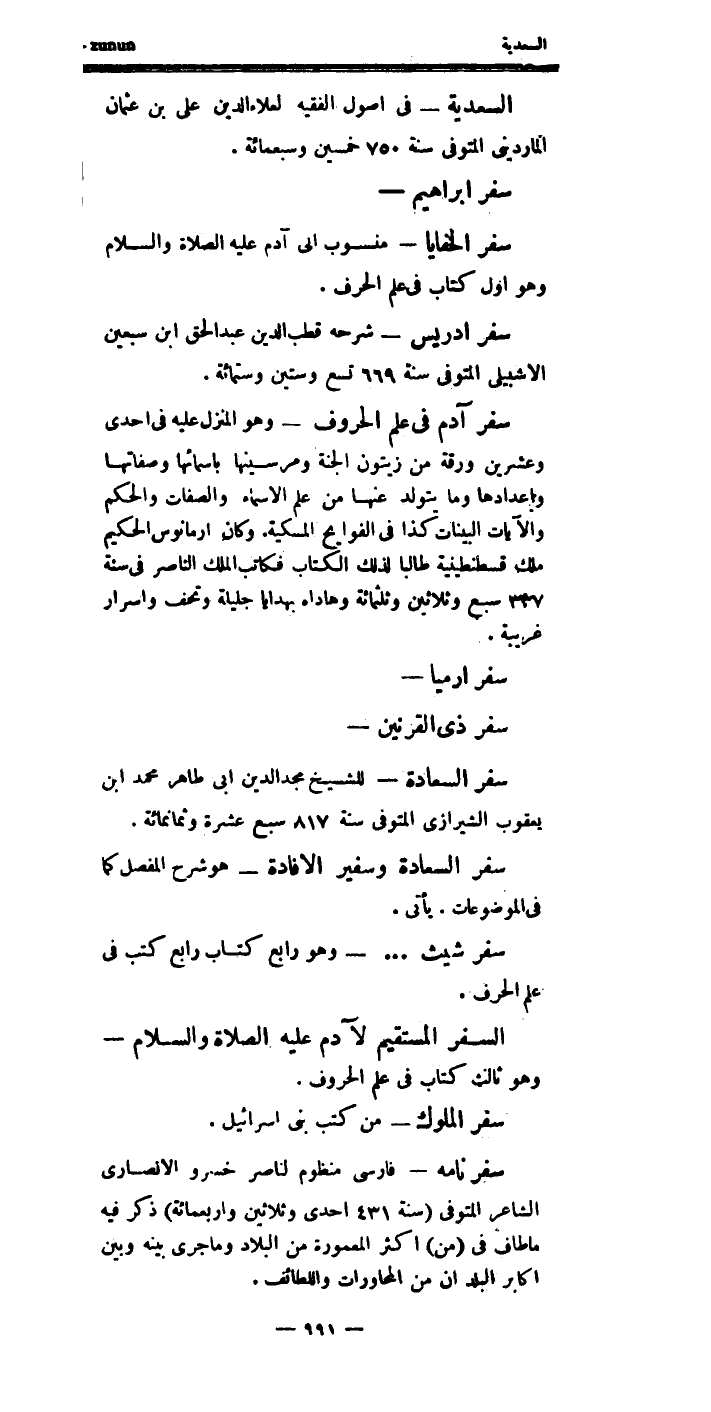 السعدية zunun
السعدية — فى اصول الفقيه لعلاءالدين على بن عثمان
الماردينى المتوفى سنة ٧٥٠ خمسين وسبعمائة .
سفر ابراهيم —
سفر الخفايا — منسوب الى آدم عليه الصلاة والسلام
وهو اول كتاب فى علم الحرف .
سفر ادريس — شرحه قطب الدين عبدالحق ابن سبعين
الاشبيلى المتوفى سنة ٦٦٩ تسع وستين وستمائة .
سفر آدم فى علم الحروف — وهو المنزل عليه فى احدى
وعشرين ورقة من زيتون الجنة ومرسينها باسمائها وصفاتها
وإعدادها وما يتولد عنها من علم الاسماء والصفات والحكم
والآيات البينات كذا فى الفوايح المسكية. وكان ارمانوس الحكيم
ملك قسطنطينية طالبا لذلك الكتاب فكاتب الملك الناصر فى سنة
٣٣٧ سبع وثلاثين وثلثمائة وهاداه بهدايا جليلة وتحف واسرار
غريبة .
سفر ارميا —
سفر ذى القرنين —
سفر السعادة — للشيخ مجدالدين ابى طاهر محمد ابن
يعقوب الشيرازى المتوفى سنة ٨١٧ سبع عشرة وثمانمائة .
سفر السعادة وسفير الافادة — هو شرح المفصل كما
فى الموضوعات . يأتى .
سفر شيث ... — وهو رابع كتاب رابع كتب فى
علم الحرف .
السفر المستقيم لآدم عليه الصلاة والسلام —
وهو ثالث كتاب فى علم الحروف .
سفر الملوك — من كتب بنى اسرائيل .
سفر نامه — فارسى منظوم لناصر خسرو الانصارى
الشاعر المتوفى (سنة ٤٣١ احدى وثلاثين واربعمائة) ذكر فيه
ماطاف فى (من) اكثر المعمورة من البلاد وماجرى بينه وبين
اكابر البلد ان من المحاورات واللطائف .
— ٩٩١ —